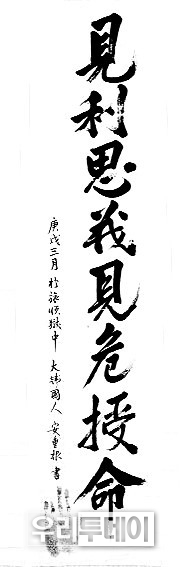 見利思義見危授命
庚戌三月 於旅順獄中 大韓國人 安重根 書
우리투데이